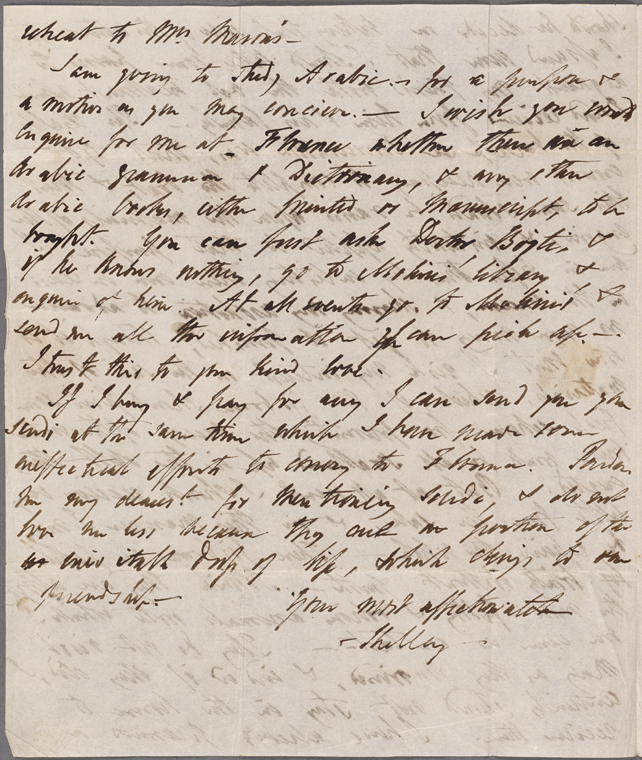 wheat to Mrs Mason's —
I am going to study Arabic — for a purpose &
a motive as you may conceive. — I wish you would
Enquire for me at Florence whether there are an
Arabic grammar & Dictionary, & any other
Arabic books, either printed or Manuscript, to be
bought. You can first ask Doctor Bojti, &
if he knows nothing, go to Molini's library &
enquire of him. At all events go to Molini's &
send me all the information you can pick up. —
I trust this to your kind love.
If I buy & pay for any I can send you your
scudi at the same time which I have made some
ineffectual efforts to convey to Florence. Pardon
me my dearest for mentioning scudi, & do not
love me less because they are a portion of the
inevitable dross of life, which clings to our
friendship. —
Your most affectionate
— Shelley —